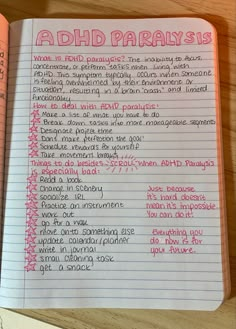 ADHD PARALYSIS
What is ADHD paralysis? The inability to focus,
concentrate, or perform tasks when living with
ADHD. This symptom typically occurs when someone
is feeling overwhelmed by their environment or
situation, resulting in a brain "crash" and limited
functionality
How to deal with ADHD paralysis:
Make a list of what you have to do
Break down tasks into more manageable segments
Designate project time
Don't make perfection the goal
Schedule rewards for yourself
Take movement breaks
Things to do besides SCROLL when ADHD Paralysis
is especially bad:
Read a book
Change in scenery
socialize IRL
Practice an instrument
work out
go for a walk
move onto something else
update calendar/planner
write in journal
small cleaning task
get a snack
Just because
it's hard doesn't
mean it's impossible.
You can do it!
Everything you
do now is for
your future.